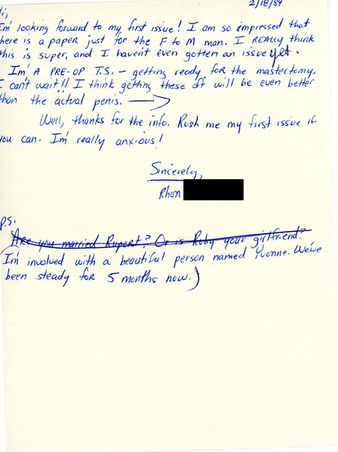 2/18/89
Hi,
I'm looking forward to my first issue! I am so impressed that
there is a paper just for the F to M man. I REALLY think
this is super, and I haven't even gotten an issue yet.
- I'm A PRE-OP T.S. - getting ready for the mastectomy.
I can't wait!! I think getting these off will be even better
than the actual penis. →
Well, thanks for the info. Rush me my first issue if
you can. I'm really anxious!
Sincerely,
Rhon
P.S.
Are you married Rupert? Or is Ruby your girlfriend?
I'm involved with a beautiful person named Yvonne. We've
been steady for 5 months now.)